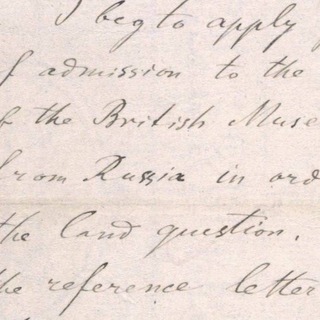 I beg to apply f
f admission to the
of the British Muse
from Russia in ord
the land question.
the reference letter